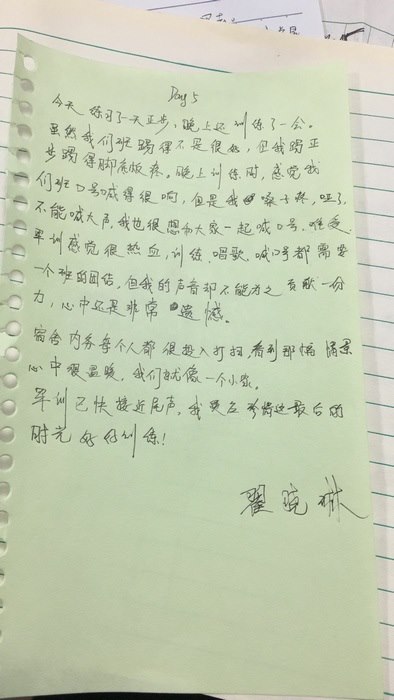 Day 5
今天练习了一天正步，晚上还训练了一会。
虽然我们班踢得不是很好，但我踢正
步踢得脚底板疼。晚上训练时，感觉我
们班口号喊得很响，但是我嗓子疼，哑了，
不能喊大声，我也很想和大家一起喊口号，难受。
军训感觉很热血，训练、唱歌、喊口号都需要
一个班的团结，但我的声音却不能为之贡献一份
力，心中还是非常遗憾。
宿舍内务每个人都很投入打扫，看到那幅情景
心中很温暖，我们就像一个小家。
军训已快接近尾声，我要在珍惜这最后的
时光好好训练！
翟晓琳